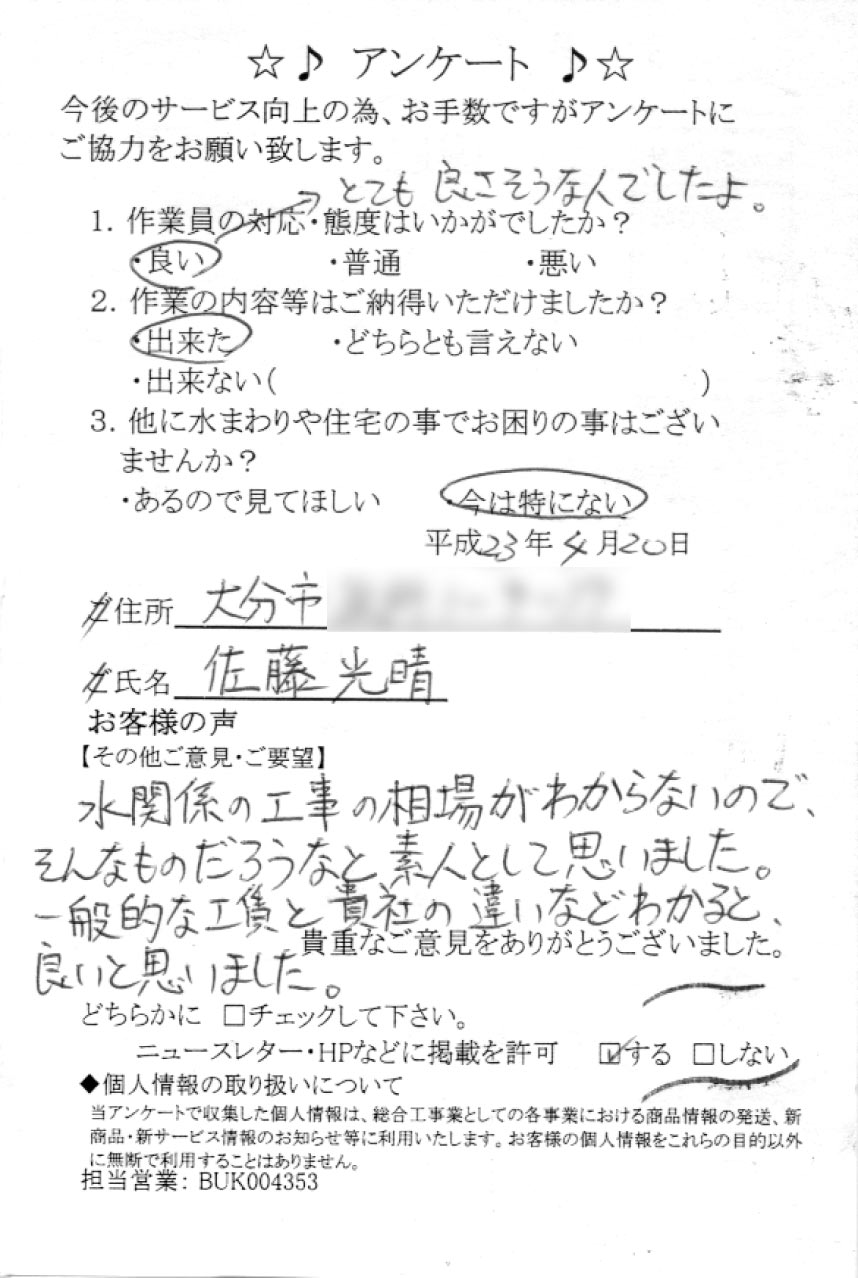 ☆♪ アンケート ♪☆
今後のサービス向上の為、お手数ですがアンケートに
ご協力をお願い致します。
とても良さそうな人でしたよ。
1. 作業員の対応・態度はいかがでしたか?
・良い ・普通 ・悪い
2. 作業の内容等はご納得いただけましたか?
・出来た ・どちらとも言えない
・出来ない( )
3. 他に水まわりや住宅の事でお困りの事はござい
ませんか?
・あるので見てほしい ・今は特にない
平成23年4月20日
ご住所 大分市
ご氏名 佐藤光晴
お客様の声
【その他ご意見・ご要望】
水関係の工事の相場がわからないので、
そんなものだろうなと素人として思いました。
一般的な工賃と貴社の違いなどわかると、
貴重なご意見をありがとうございました。
良いと思いました。
どちらかに □チェックして下さい。
ニュースレター・HPなどに掲載を許可 ☑する □しない
◆個人情報の取り扱いについて
当アンケートで収集した個人情報は、総合工事業としての各事業における商品情報の発送、新
商品・新サービス情報のお知らせ等に利用いたします。お客様の個人情報をこれらの目的以外
に無断で利用することはありません。
担当営業: BUK004353